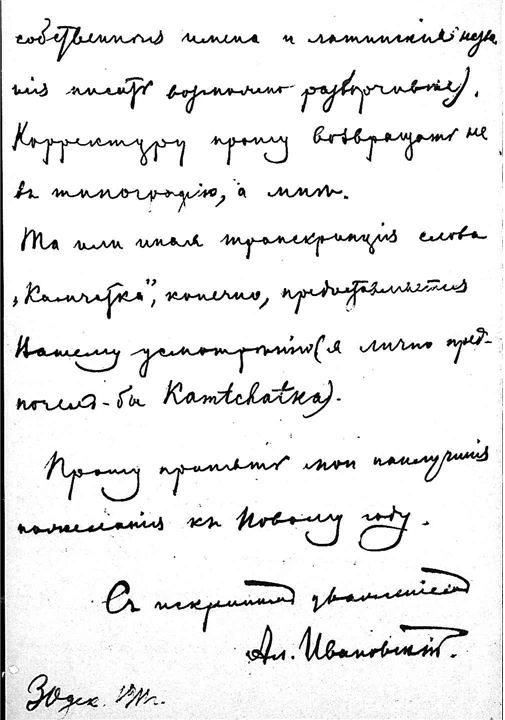 собственныя имена и латинскія назва-
нія писать возможно разборчивѣе).
Корректуру прошу возвращать не
въ типографію, а мнѣ.
Та или иная транскрипція слова
„Камчатка", конечно, предоставляется
Вашему усмотрѣнію (я лично пред-
почелъ-бы Kamtchatka).
Прошу принять мои наилучшія
пожеланія къ Новому году.
Съ искреннимъ уваженіемъ
Ал. Ивановскій.
30 дек.